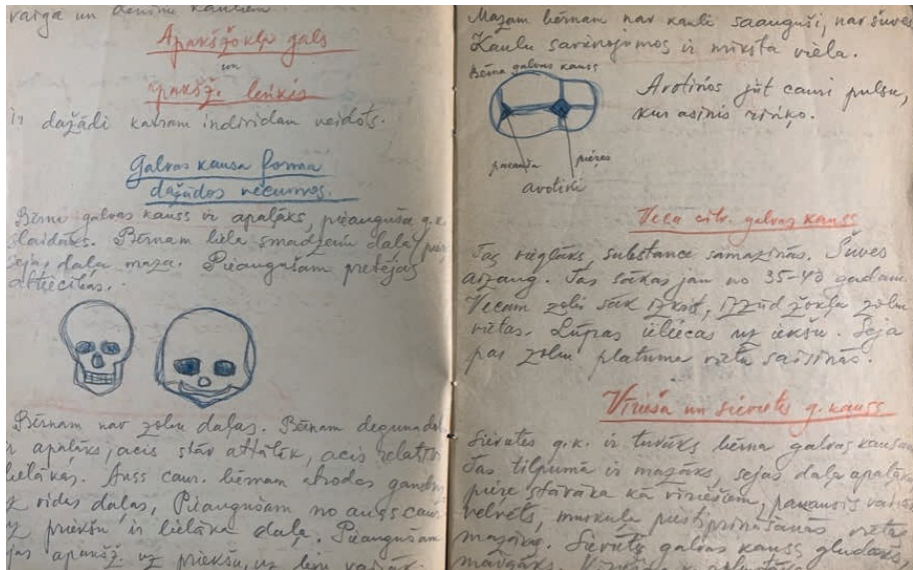 vaiga un deniņu kauliem
Apakšžokļa gals
un
apakšž. leņķis
ir dažādi katram individam veidots.
Galvas kausa forma
dažādos vecumos.
Bērna galvas kauss ir apaļāks, pieauguša g.k.
slaidāks. Bērnam liela smadzeņu daļa,
sejas daļa maza. Pieaugušam pretējas
attiecības.
Bērnam nav zobu daļas. Bērnam deguna
ir apaļāks, acis stāv attālāk, acis relatīvi
lielākas. Auss caur. bērnam atrodas gandrīz
vidus daļas, Pieaugušam no auss caur.
uz priekšu ir lielāka daļa. Pieaugušam
apakšž. uz priekšu, uz leju vairāk
Mazam bērnam nav kauli saauguši, nav šuves
Kaulu savienojumos ir mīksta viela.
Bērna galvas kauss
Avotiņos jūt cauri pulsu,
kur asinis riņķo.
pakauša
pieres
avotiņi
Veca cilv. galvas kauss
Tas vieglāks, substance samazinās. Šuves
aizaug. Tas sākas jau no 35-40 gadam.
Vecam zobi sāk izkrist, izzūd žokļa zobu
vietas. Lūpas ieliecas uz iekšu. Seja
par zobu platuma vietu saīsinās.
Vīrieša un sievietes g. kauss
Sievietes g.k. ir tuvāks bērna galvas kausam
Tas tilpumā ir mazāks, sejas daļa apaļāka
piere stāvāka kā vīriešiem, pakausis vairāk
velvēts, muskuļu piestiprināšanās vietas
mazākas. Sievietes galvas kauss gludāks,